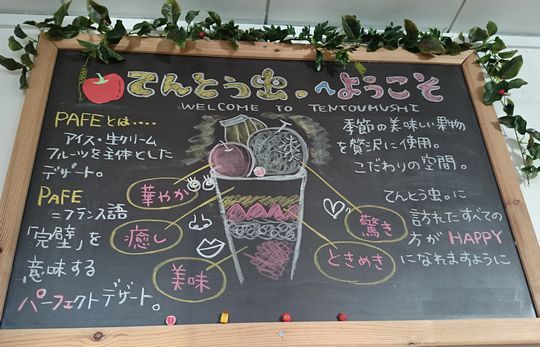 てんとう虫。へようこそ
WELCOME TO TENTOUMUSHI
PAFEとは....
アイス・生クリーム
フルーツを主体とした
デザート。
PAFE
=フランス語
「完壁」を
意味する
パーフェクトデザート。
華やか
癒し
美味
驚き
ときめき
季節の美味しい果物
を贅沢に使用。
こだわりの空間。
てんとう虫。に
訪れたすべての
方がHAPPY
になれますように